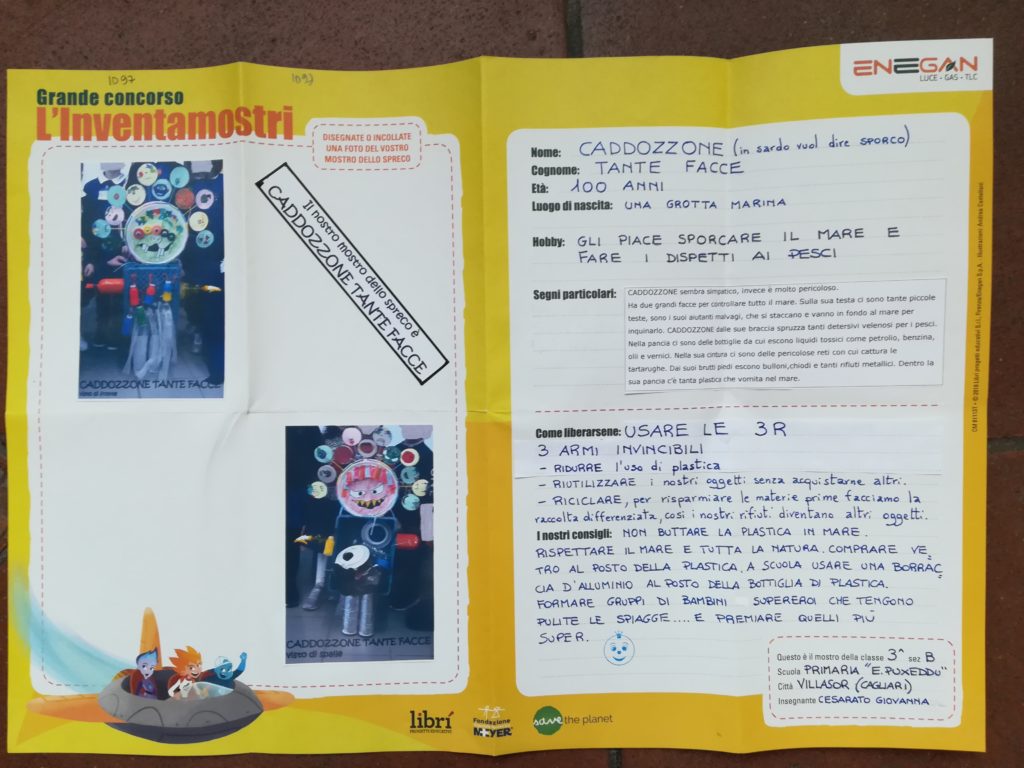 1097
1097
Grande concorso
L'Inventamostri
DISEGNATE O INCOLLATE
UNA FOTO DEL VOSTRO
MOSTRO DELLO SPRECO
Il nostro mostro dello spreco è
CADDOZZONE TANTE FACCE
CADDOZZONE TANTE FACCE
CADDOZZONE TANTE FACCE
visto di spalle
librí
PROGETTI EDUCATIVI
Fondazione
MEYER
save the planet
ENEGAN
LUCE • GAS • TLC
Nome: CADDOZZONE (in sardo vuol dire SPORCO)
Cognome: TANTE FACCE
Età: 100 ANNI
Luogo di nascita: UNA GROTTA MARINA
Hobby: GLI PIACE SPORCARE IL MARE E
FARE I DISPETTI AI PESCI
Segni particolari: CADDOZZONE sembra simpatico, invece è molto pericoloso.
Ha due grandi facce per controllare tutto il mare. Sulla sua testa ci sono tante piccole
teste, sono i suoi aiutanti malvagi, che si staccano e vanno in fondo al mare per
inquinarlo. CADDOZZONE dalle sue braccia spruzza tanti detersivi velenosi per i pesci.
Nella pancia ci sono delle bottiglie da cui escono liquidi tossici come petrolio, benzina,
olii e vernici. Nella sua cintura ci sono delle pericolose reti con cui cattura le
tartarughe. Dai suoi brutti piedi escono bulloni,chiodi e tanti rifiuti metallici. Dentro la
sua pancia c'è tanta plastica che vomita nel mare.
Come liberarsene: USARE LE 3R
3 ARMI INVINCIBILI
- RIDURRE l'uso di plastica
- RIUTILIZZARE i nostri oggetti senza acquistarne altri.
- RICICLARE, per risparmiare le materie prime facciamo la
raccolta differenziata, così i nostri rifiuti diventano altri oggetti.
I nostri consigli: NON BUTTARE LA PLASTICA IN MARE.
RISPETTARE IL MARE E TUTTA LA NATURA. COMPRARE VE_
TRO AL POSTO DELLA PLASTICA. A SCUOLA USARE UNA BORRAC_
CIA D'ALLUMINIO AL POSTO DELLA BOTTIGLIA DI PLASTICA.
FORMARE GRUPPI DI BAMBINI SUPEREROI CHE TENGONO
PULITE LE SPIAGGE.... E PREMIARE QUELLI PIÙ
SUPER.
Questo è il mostro della classe 3^ sez B
Scuola PRIMARIA "E. PUXEDDU"
Città VILLASOR (CAGLIARI)
Insegnante CESARATO GIOVANNA